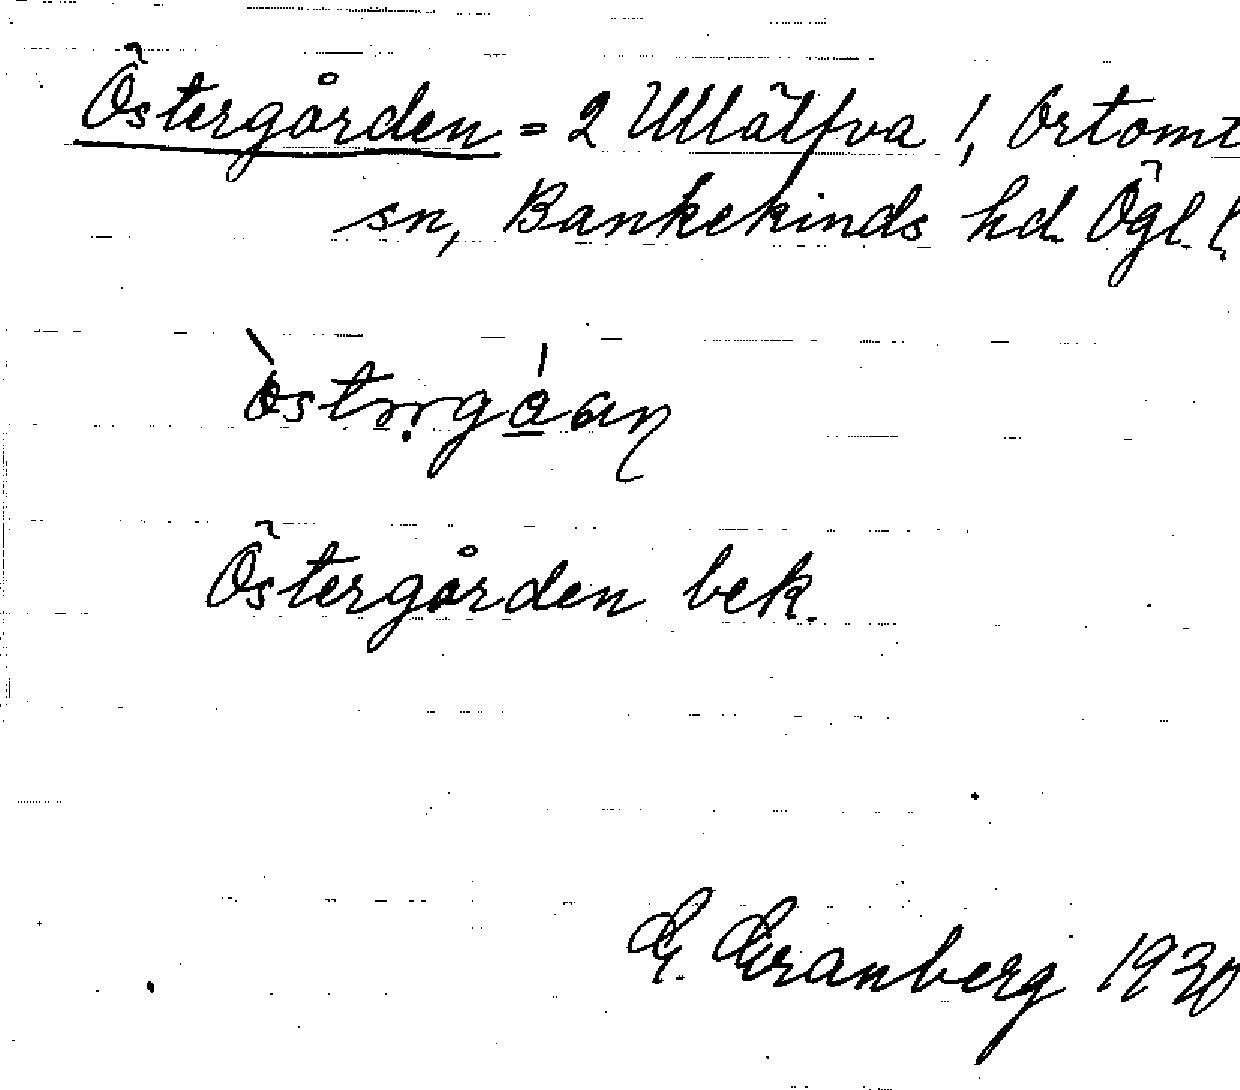 Östergården = 2 Ullälfva !, Ortomt
sn, Bankekinds hd Ögl. l.
Östergården bek.
G. Granberg 1930